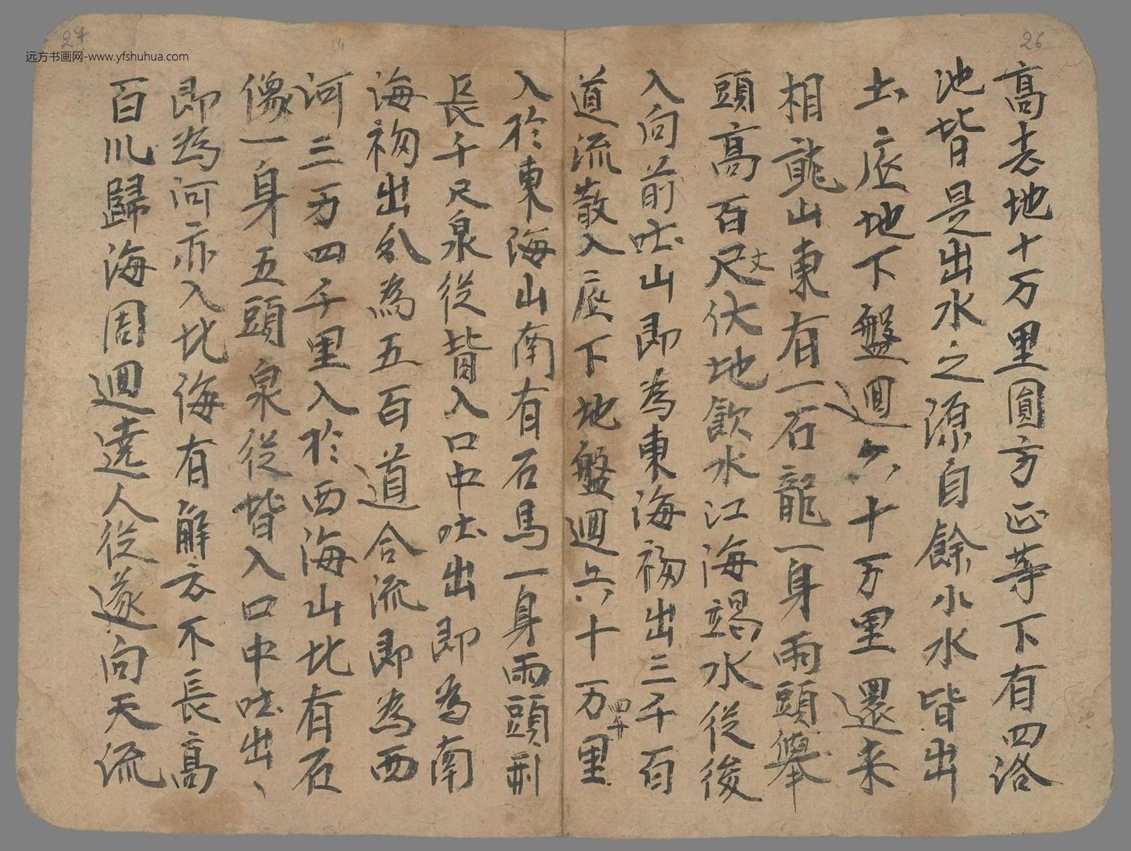 26
高去地十万里圓方正等下有四洛
池皆是出水之源自餘小水皆出
土底地下盤迴六十万里還来
相龍山東有一石龍一身兩頭舉
頭高百尺丈伏地飲水江海竭水從後
入向前吐山即為東海洀出三千百
道流散入底下地盤迴六十万四千里
入於東海山南有石馬一身兩頭形
長千尺泉從背入口中吐出即為南
海洀出分為五百道合流即為西
河三万四千里入於西海山北有石
像一身五頭泉從背入口中吐出、
即為河亦入北海有解云不長高
百川歸海周迴遶人從逐向天流
27
14
远方书画网-www.yfshuhua.com